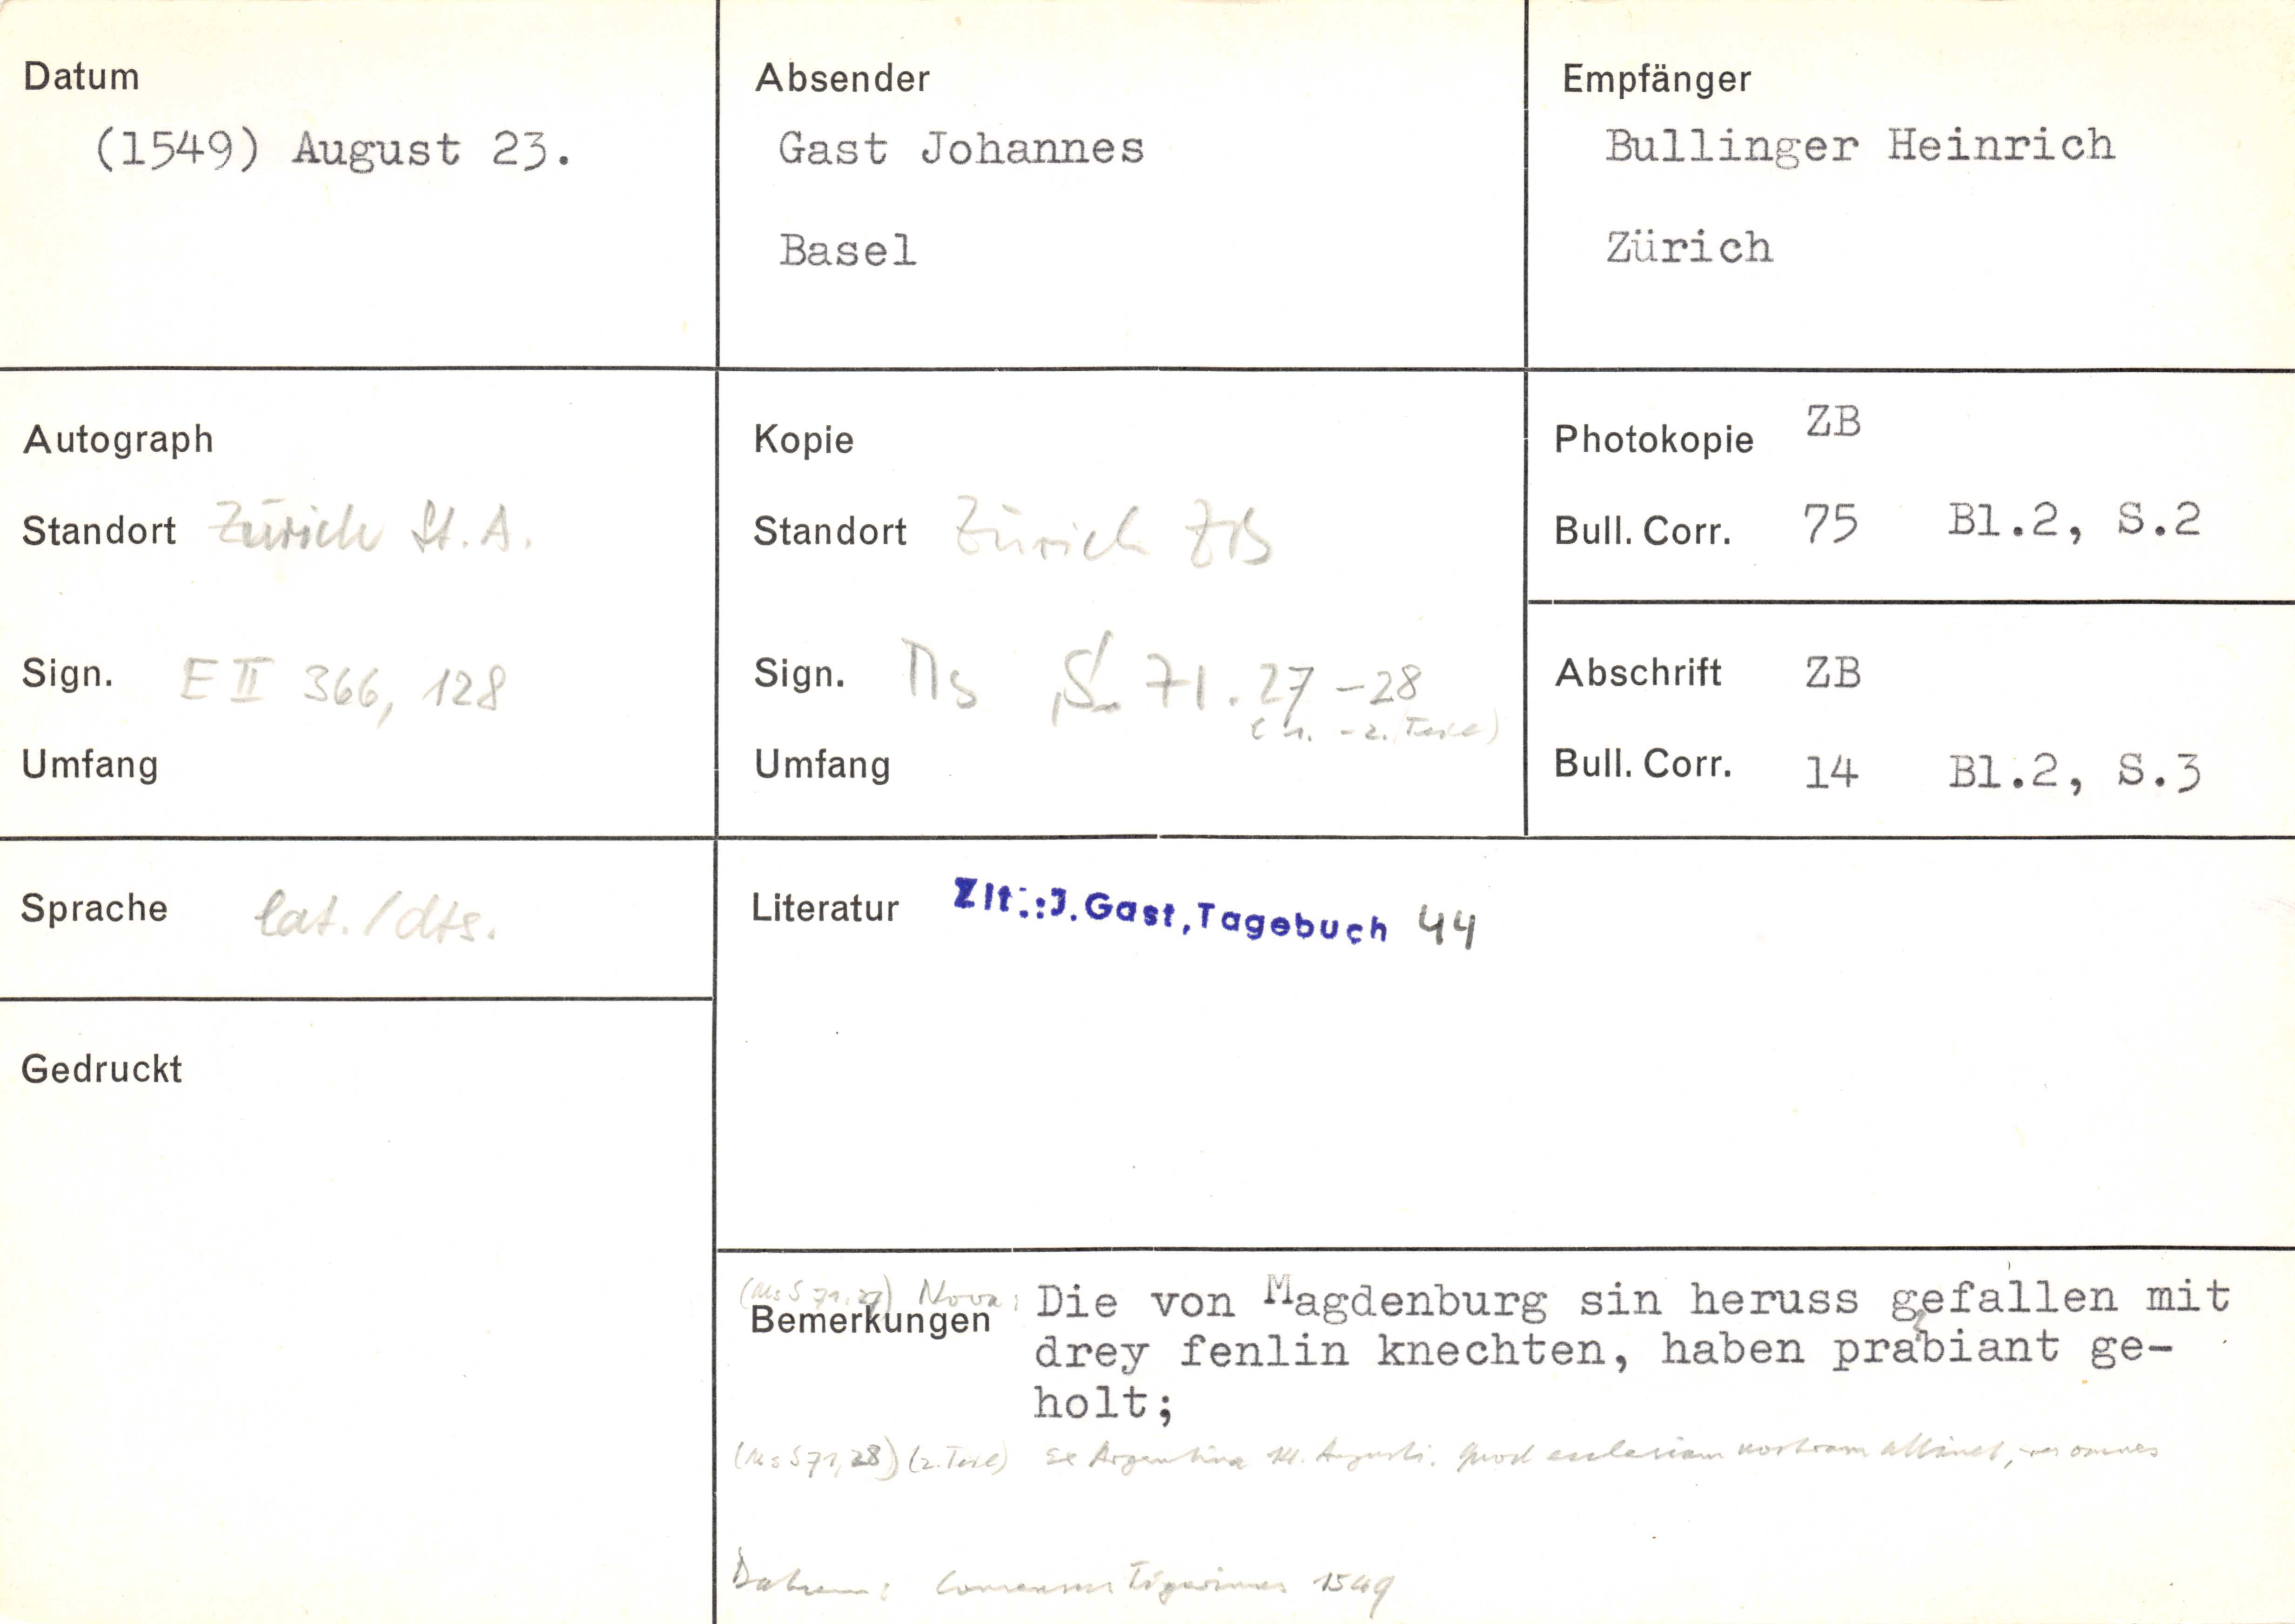 Datum
(1549) August 23.
Absender
Gast Johannes
Basel
Empfänger
Bullinger Heinrich
Zürich
Autograph
Standort Zürich St. A.
Sign. E II 366, 128
Umfang
Kopie
Standort Zürich ZB
Sign. Ms S 71.27-28
(1. - 2. Teil)
Umfang
Photokopie ZB
Bull. Corr. 75 Bl.2, S.2
Abschrift ZB
Bull. Corr. 14 Bl.2, S.3
Sprache lat./dts.
Literatur Zlt.:J.Gast,Tagebuch 44
Gedruckt
Bemerkungen
(Ms S 71.27) Nova: Die von Magdenburg sin heruss gefallen mit
drey fenlin knechten, haben prabiant ge-
holt;
(Ms S 71,28) (2. Teil) Ex Argentina 14. Augusti. Quod ecclesiam nostram attinet, res omnes
Datum: Consensus Tigurinus 1549